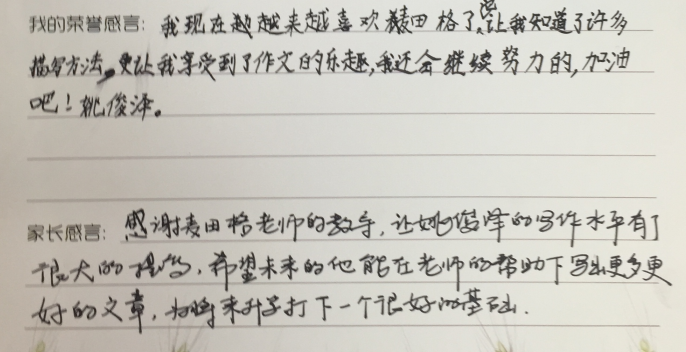 我的荣誉感言: 我现在越越来越喜欢麦田格了,它让我知道了许多
描写方法。更让我享受到了作文的乐趣,我还会继续努力的,加油
吧!姚俊泽。
家长感言: 感谢麦田格老师的教导,让姚俊泽的写作水平有了
很大的提高,希望未来的他能在老师的帮助下写出更多更
好的文章,为将来升学打下一个很好的基础.